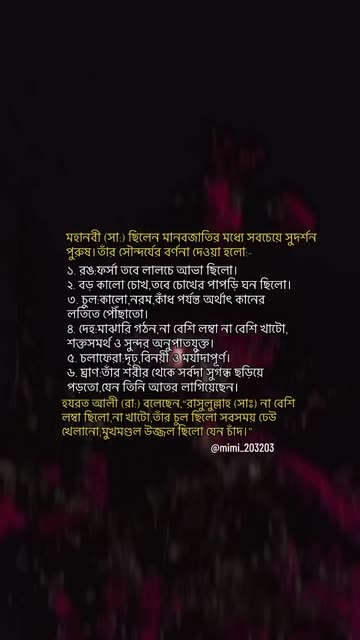 মহানবী (সা:) ছিলেন মানবজাতির মধ্যে সবচেয়ে সুদর্শন
পুরুষ। তাঁর সৌন্দর্যের বর্ণনা দেওয়া হলো:-
১. রঙ:ফর্সা তবে লালচে আভা ছিলো।
২. বড় কালো চোখ,তবে চোখের পাপড়ি ঘন ছিলো।
৩. চুল:কালো,নরম,কাঁধ পর্যন্ত অর্থাৎ কানের
লতিতে পৌঁছাতো।
৪. দেহ:মাঝারি গঠন,না বেশি লম্বা না বেশি খাটো,
শক্তসমর্থ ও সুন্দর অনুপাতযুক্ত।
৫. চলাফেরা:দৃঢ়,বিনয়ী ও মর্যাদাপূর্ণ।
৬. ঘ্রাণ:তাঁর শরীর থেকে সর্বদা সুগন্ধ ছড়িয়ে
পড়তো,যেন তিনি আতর লাগিয়েছেন।
হযরত আলী (রা:) বলেছেন,“রাসুলুল্লাহ (সাঃ) না বেশি
লম্বা ছিলো,না খাটো,তাঁর চুল ছিলো সবসময় ঢেউ
খেলানো,মুখমণ্ডল উজ্জল ছিলো যেন চাঁদ।”
@mimi_203203